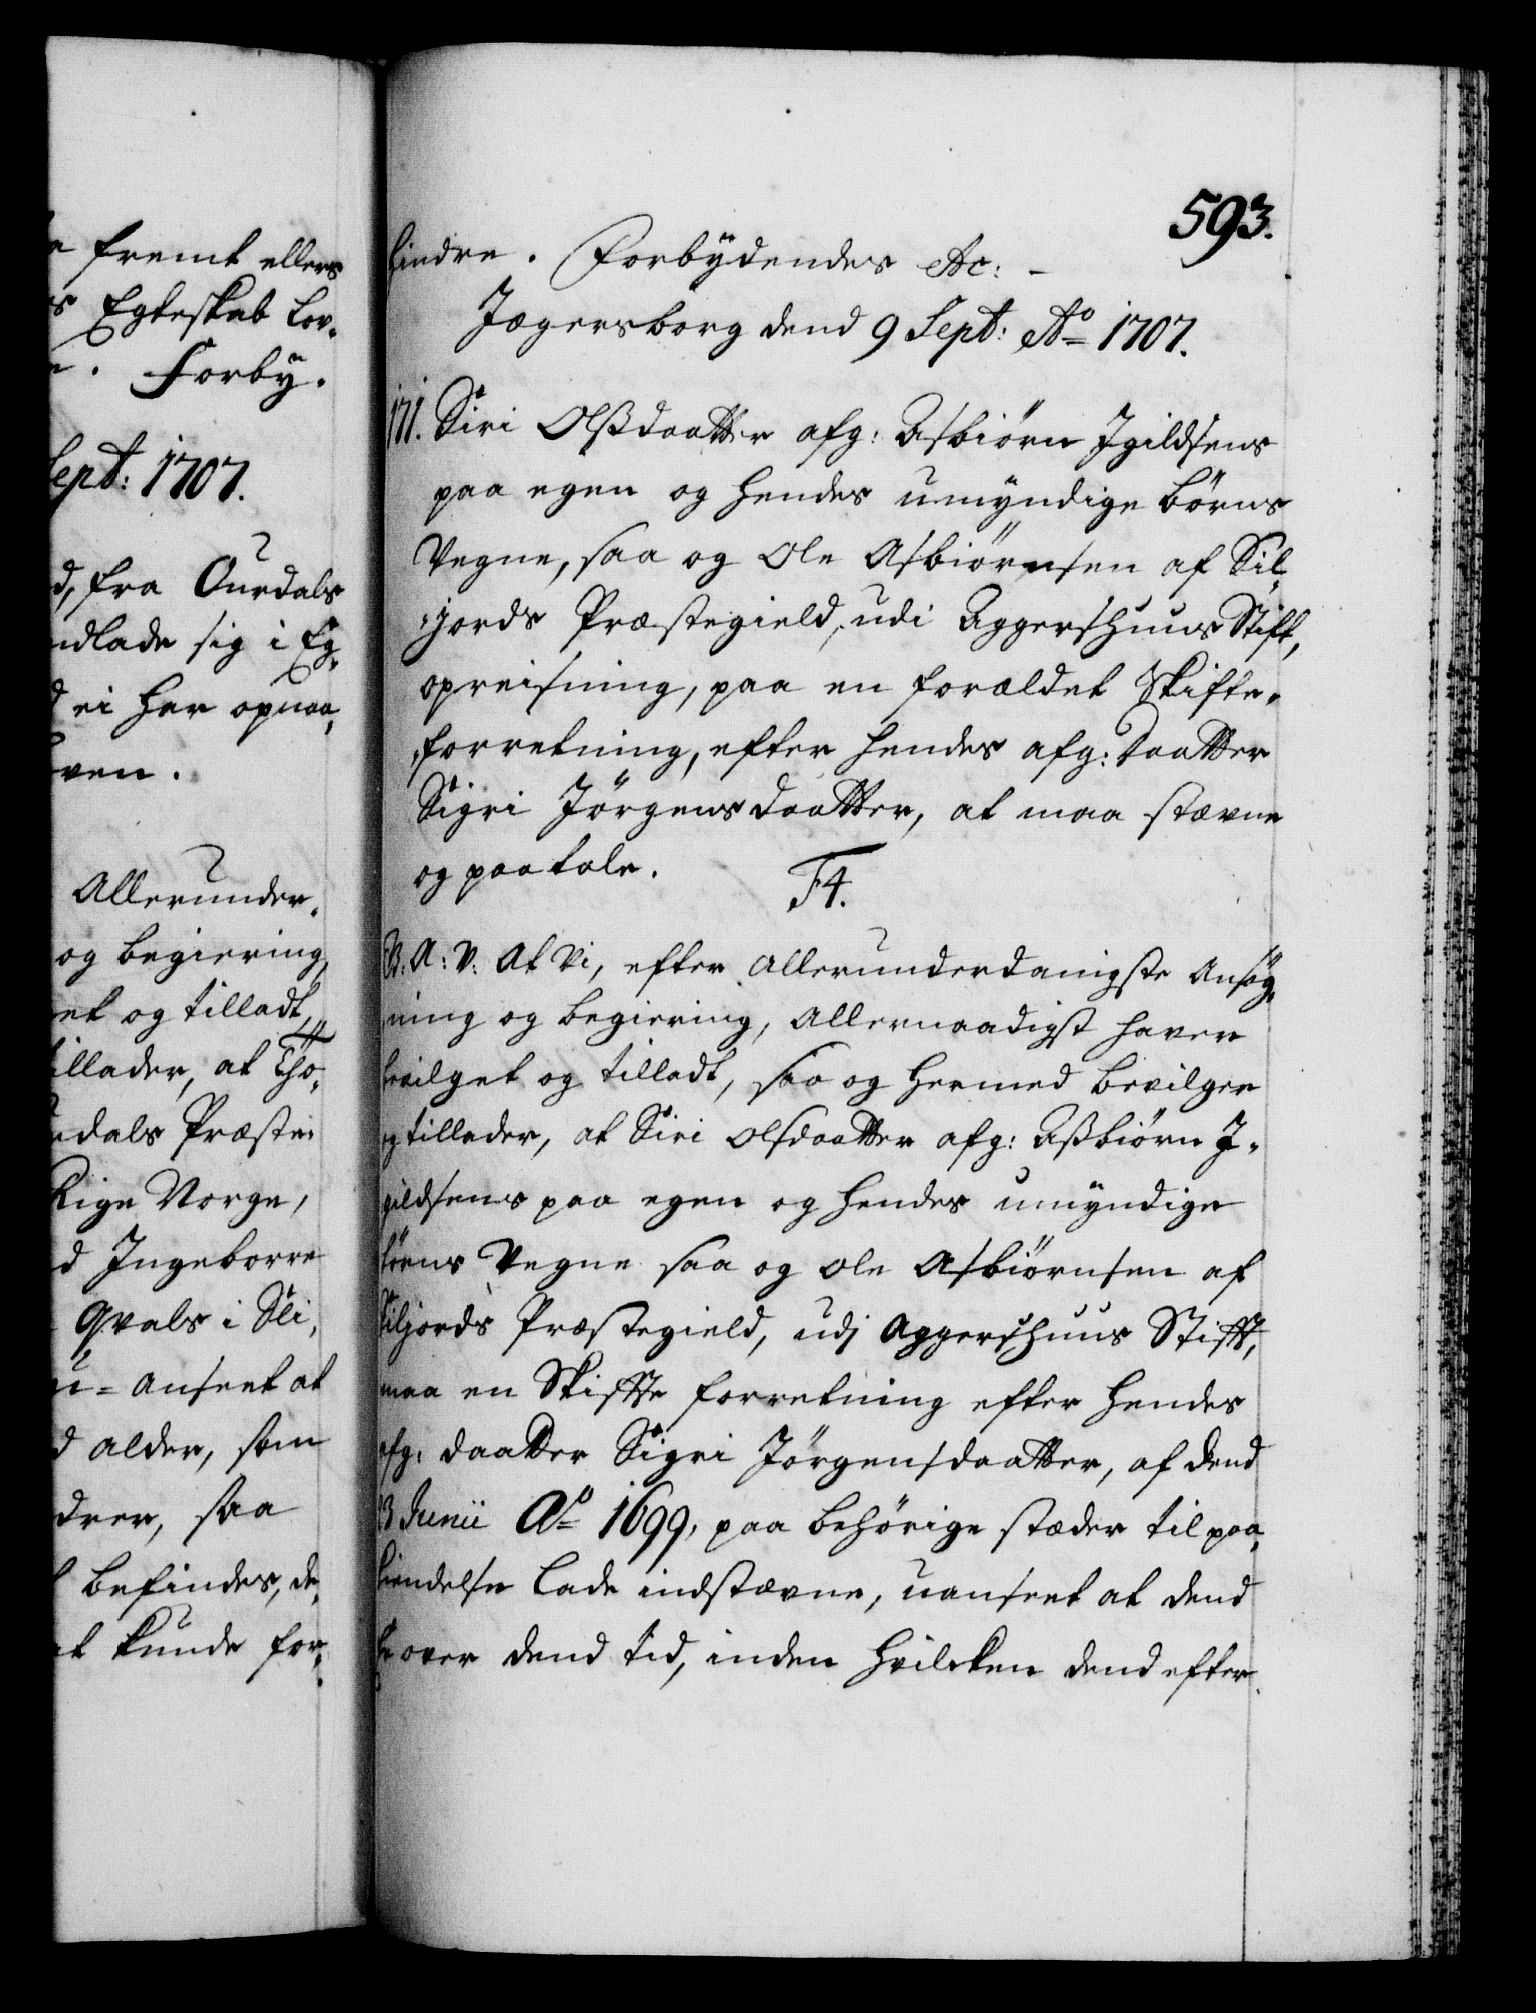 fremt ellers
Egteskab Lov-
Forby-
Sept: 1707.
fra Ourdals
ndlade sig i Eg-
ei her opnaa,
ven.
Allerunder-
og begiering
et og tilladt
illader, at Tho-
dals Præste-
Rige Norge,
d Ingeborre
Qvals i Sli-
u-anseet at
d alder, som
drer, saa
befindes, de-
kunde for-
593.
hindre. Forbydendes &c: -
Jægersborg dend 9 Sept: Ao 1707.
171. Siri Olssdaatter afg: Asbiørn Jgildsens
paa egen og hendes umyndige børns
Vegne, saa og Ole Asbiørnsen af Sil-
jords Præstegield, udi Aggershuus Stift,
opreisning, paa en forældet Skifte-
forretning, efter hendes afg: Daatter
Sigri Jørgensdaatter, at maa stævne
og paatale.
F4.
G: A: V: At Vi, efter allerunderdanigste Ansøg-
ning og begiering, allernaadigst haver
bevilget og tilladt, saa og hermed bevilger
og tillader, at Siri olsdaatter afg: Assbiørn J-
gildsens paa egen og hendes umyndige
børns Vegne saa og ole Asbiørnsen af
Siljords Præstegield, udj Aggershuus Stifft,
maa en Skiffte forretning efter hendes
afg: daatter Sigri Jørgensdaatter, af dend
3 Junii Ao 1699, paa behørige stæder til paa-
kiendelse lade indstævne, uanseet at dend
er over dend tid, inden hvilcken dend efter